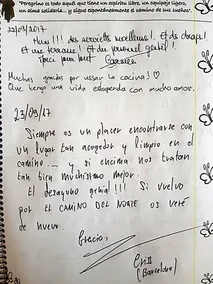 "Peregrino es todo aquél que tiene un espíritu libre, un equipaje ligero,
un alma solidaria... y sigue espontáneamente el camino de sus sueños".
22/09/2017
Hum!!! des serviettes moelleuses! Et des draps!
Et une terrasse! Et du personnel génial!
Merci pour tout
Muchas gracias por usar la cocina! ♡
Que tenga una vida estupenda con mucho amor.
23/09/17
Siempre es un placer encontrarse con
un lugar tan acogedor y limpio en el
camino... y si encima nos tratan
tan bien muchísimo mejor.
El desayuno genial!!! Si vuelvo
por EL CAMINO DEL NORTE os veré
de nuevo.
Gracias,
Cris
(Barcelona)